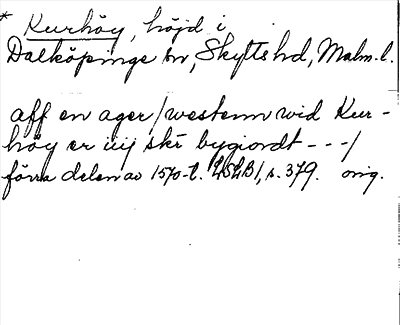 * Kurhöy, höjd i
Dalköpinge sn, Skytts hd, Malm. l.
aff en ager / westenn wid Kur-
höy er iiij skr bygiordt - - - /
förra delen av 1570-t. LSLB1, s. 379. orig.